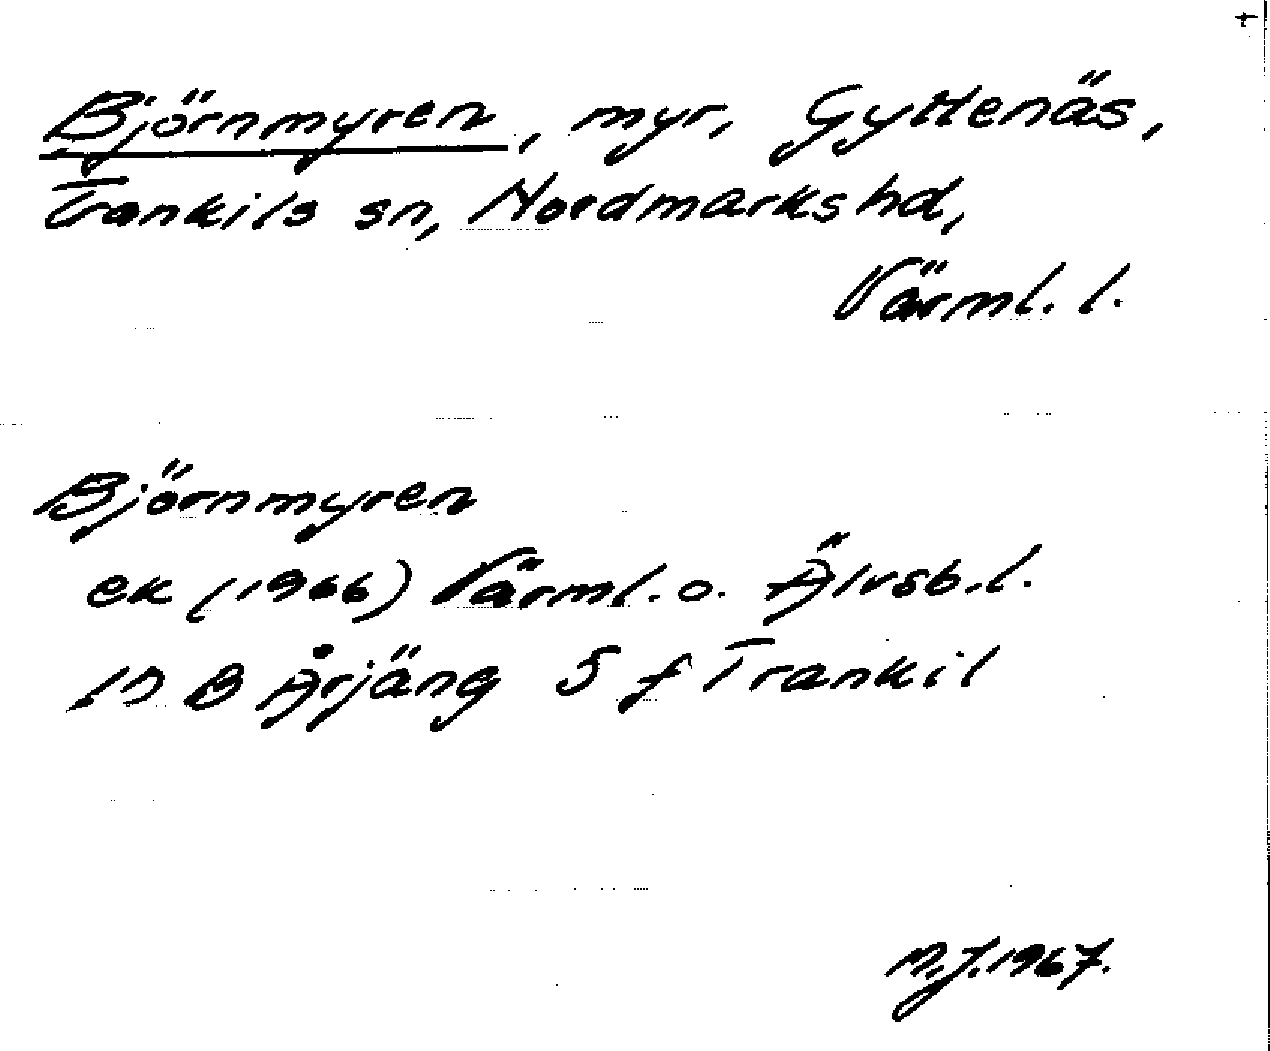 Björnmyren, myr, Gyltenäs,
Trankils sn, Nordmarks hd,
Värml. l.
Björnmyren
ek (1966) Värml. o. Älvsb. l.
10 B Årjäng 5 f Trankil
M.J. 1967.